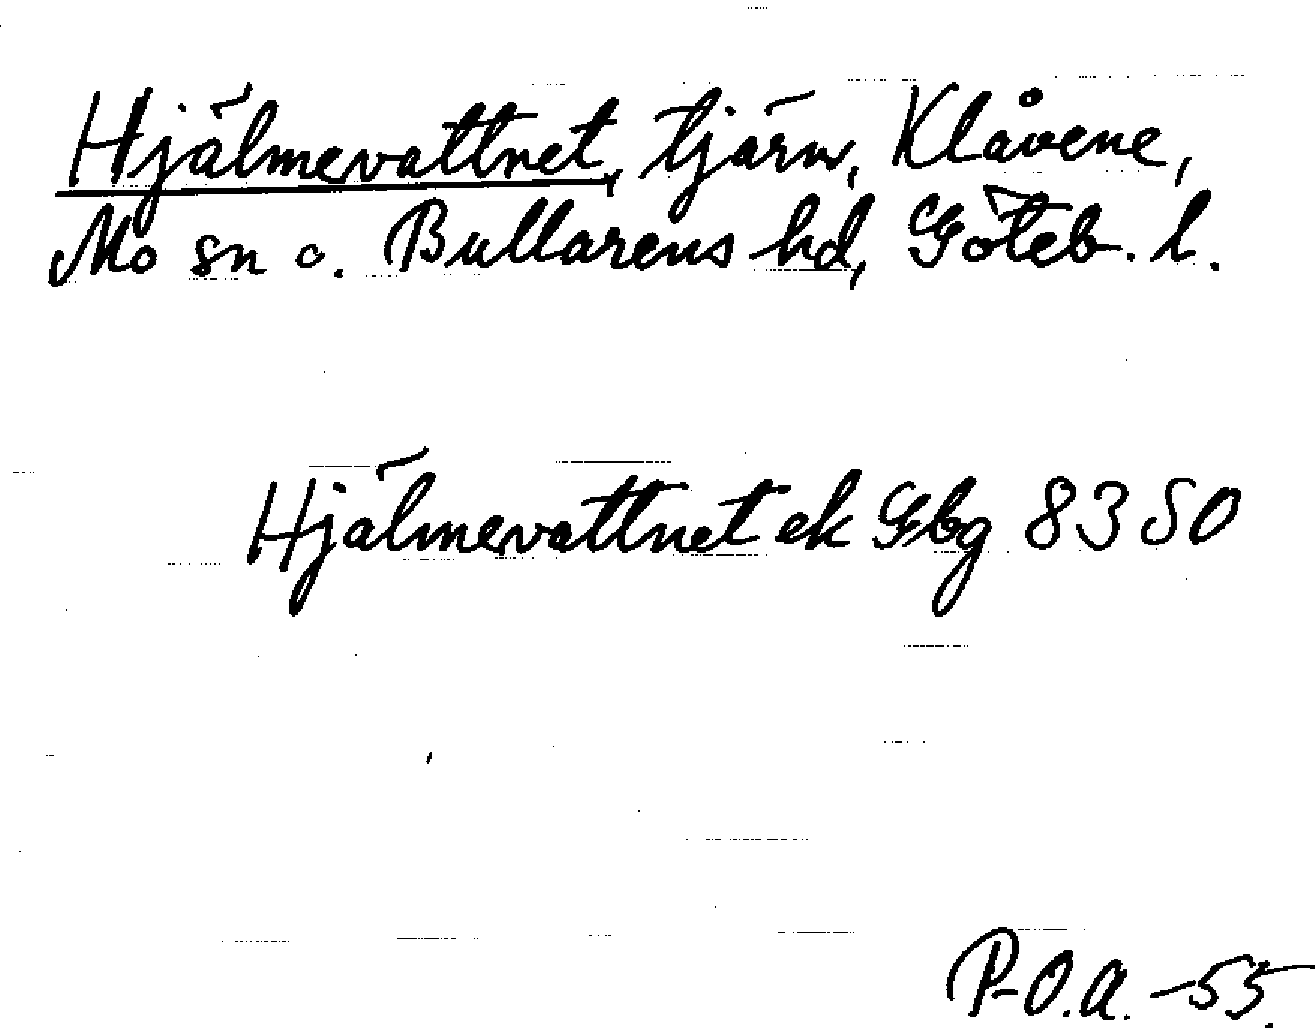 Hjälmevattnet, tjärn, Klåvene,
Mo sn o. Bullarens hd, Göteb. l.
Hjälmevattnet ek Gbg 8350
P-O.A. -55.